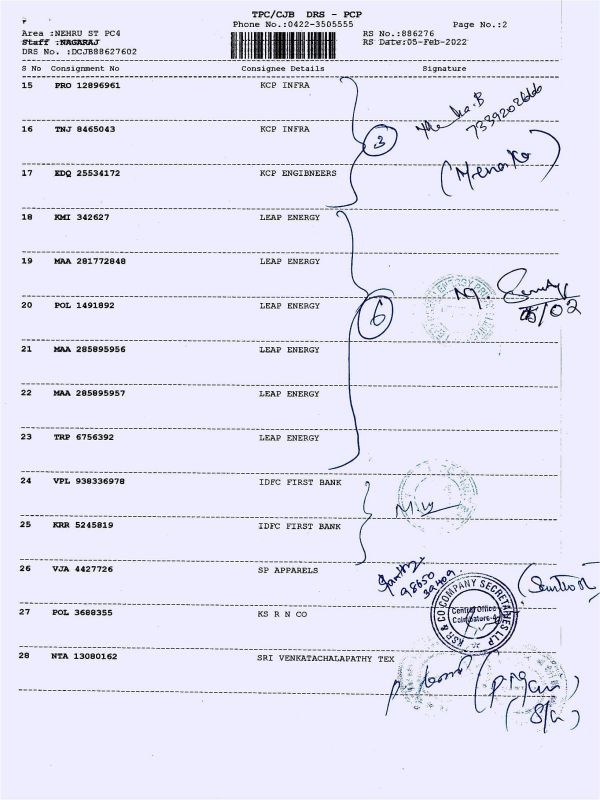 TPC/CJB DRS - PCP
Phone No.:0422-3505555
Page No.:2
Area :NEHRU ST PC4
RS No.:886276
Staff :NAGARAJ
RS Date:05-Feb-2022
DRS No. :DCJB88627602
S No Consignment No Consignee Details Signature
15 PRO 12896961 KCP INFRA
16 TNJ 8465043 KCP INFRA
3
(Menaka)
17 EDQ 25534172 KCP ENGIBNEERS
18 KMI 342627 LEAP ENERGY
19 MAA 281772848 LEAP ENERGY
20 POL 1491892 LEAP ENERGY
6
/02
21 MAA 285895956 LEAP ENERGY
22 MAA 285895957 LEAP ENERGY
23 TRP 6756392 LEAP ENERGY
24 VPL 938336978 IDFC FIRST BANK
25 KRR 5245819 IDFC FIRST BANK
26 VJA 4427726 SP APPARELS
98650
39409
27 POL 3688355 KS R N CO
KSR & CO COMPANY SECRETARIES LLP
Central Office
28 NTA 13080162 SRI VENKATACHALAPATHY TEX